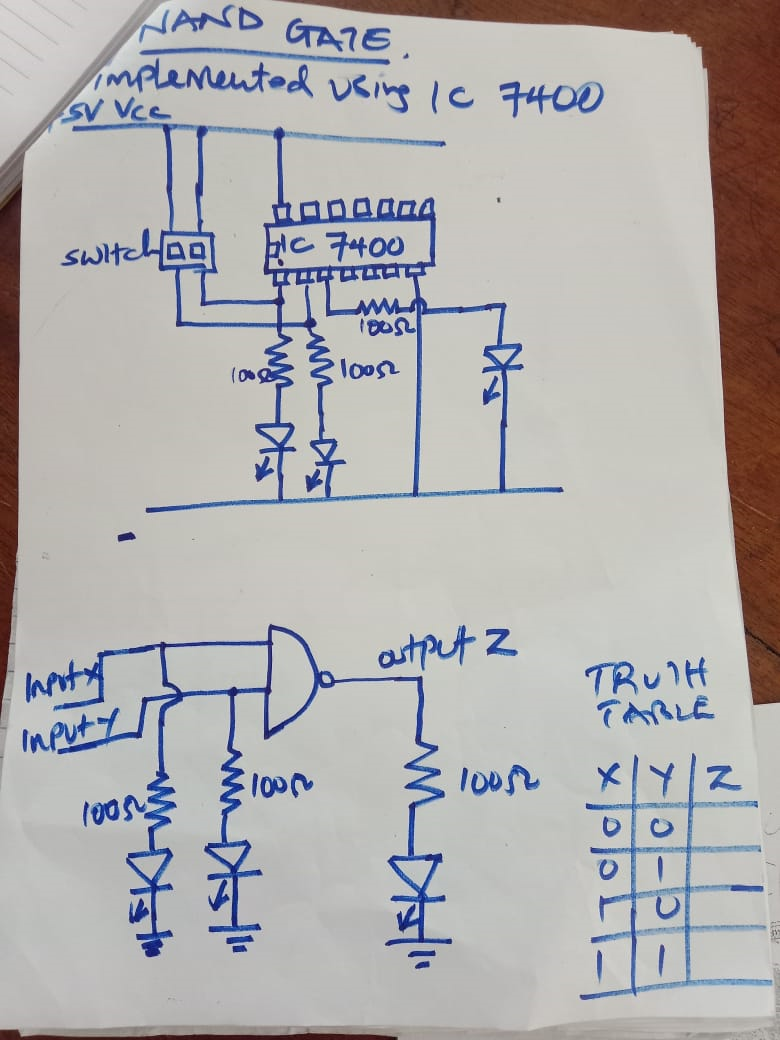 NAND GATE.
implemented using IC 7400
5V Vcc
switch
IC 7400
100Ω
100Ω
100Ω
Input X
Input Y
output Z
100Ω
100Ω
100Ω
TRUTH
TABLE
X Y Z
0 0
0 1
1 0
1 1